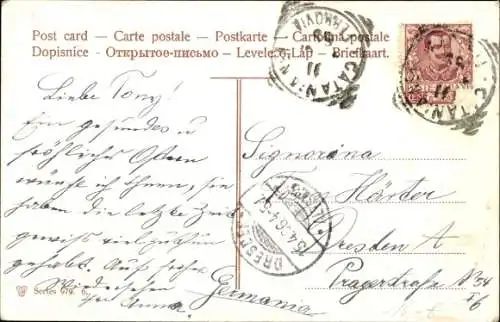 Post card – Carte postale – Postkarte – Cartolina postale
Dopisnice – Открытое письмо – Levelező-Lap – Briefkaart.
CATANIA
FERROVIA
CATANIA
Liebe Tony!
Ein gesundes u
fröhliches Ostern
wünsche ich Ihnen, sie
haben die letzte Zeit
gewiss viel zu thun
gehabt. Auf frohes
Wiedersehen
Anna.
Signorina
Tony Härter
Dresden A
Pragerstraße N 54
II 6
Germania
DRESDEN
15.4.06.4-5
Series 679. 6.